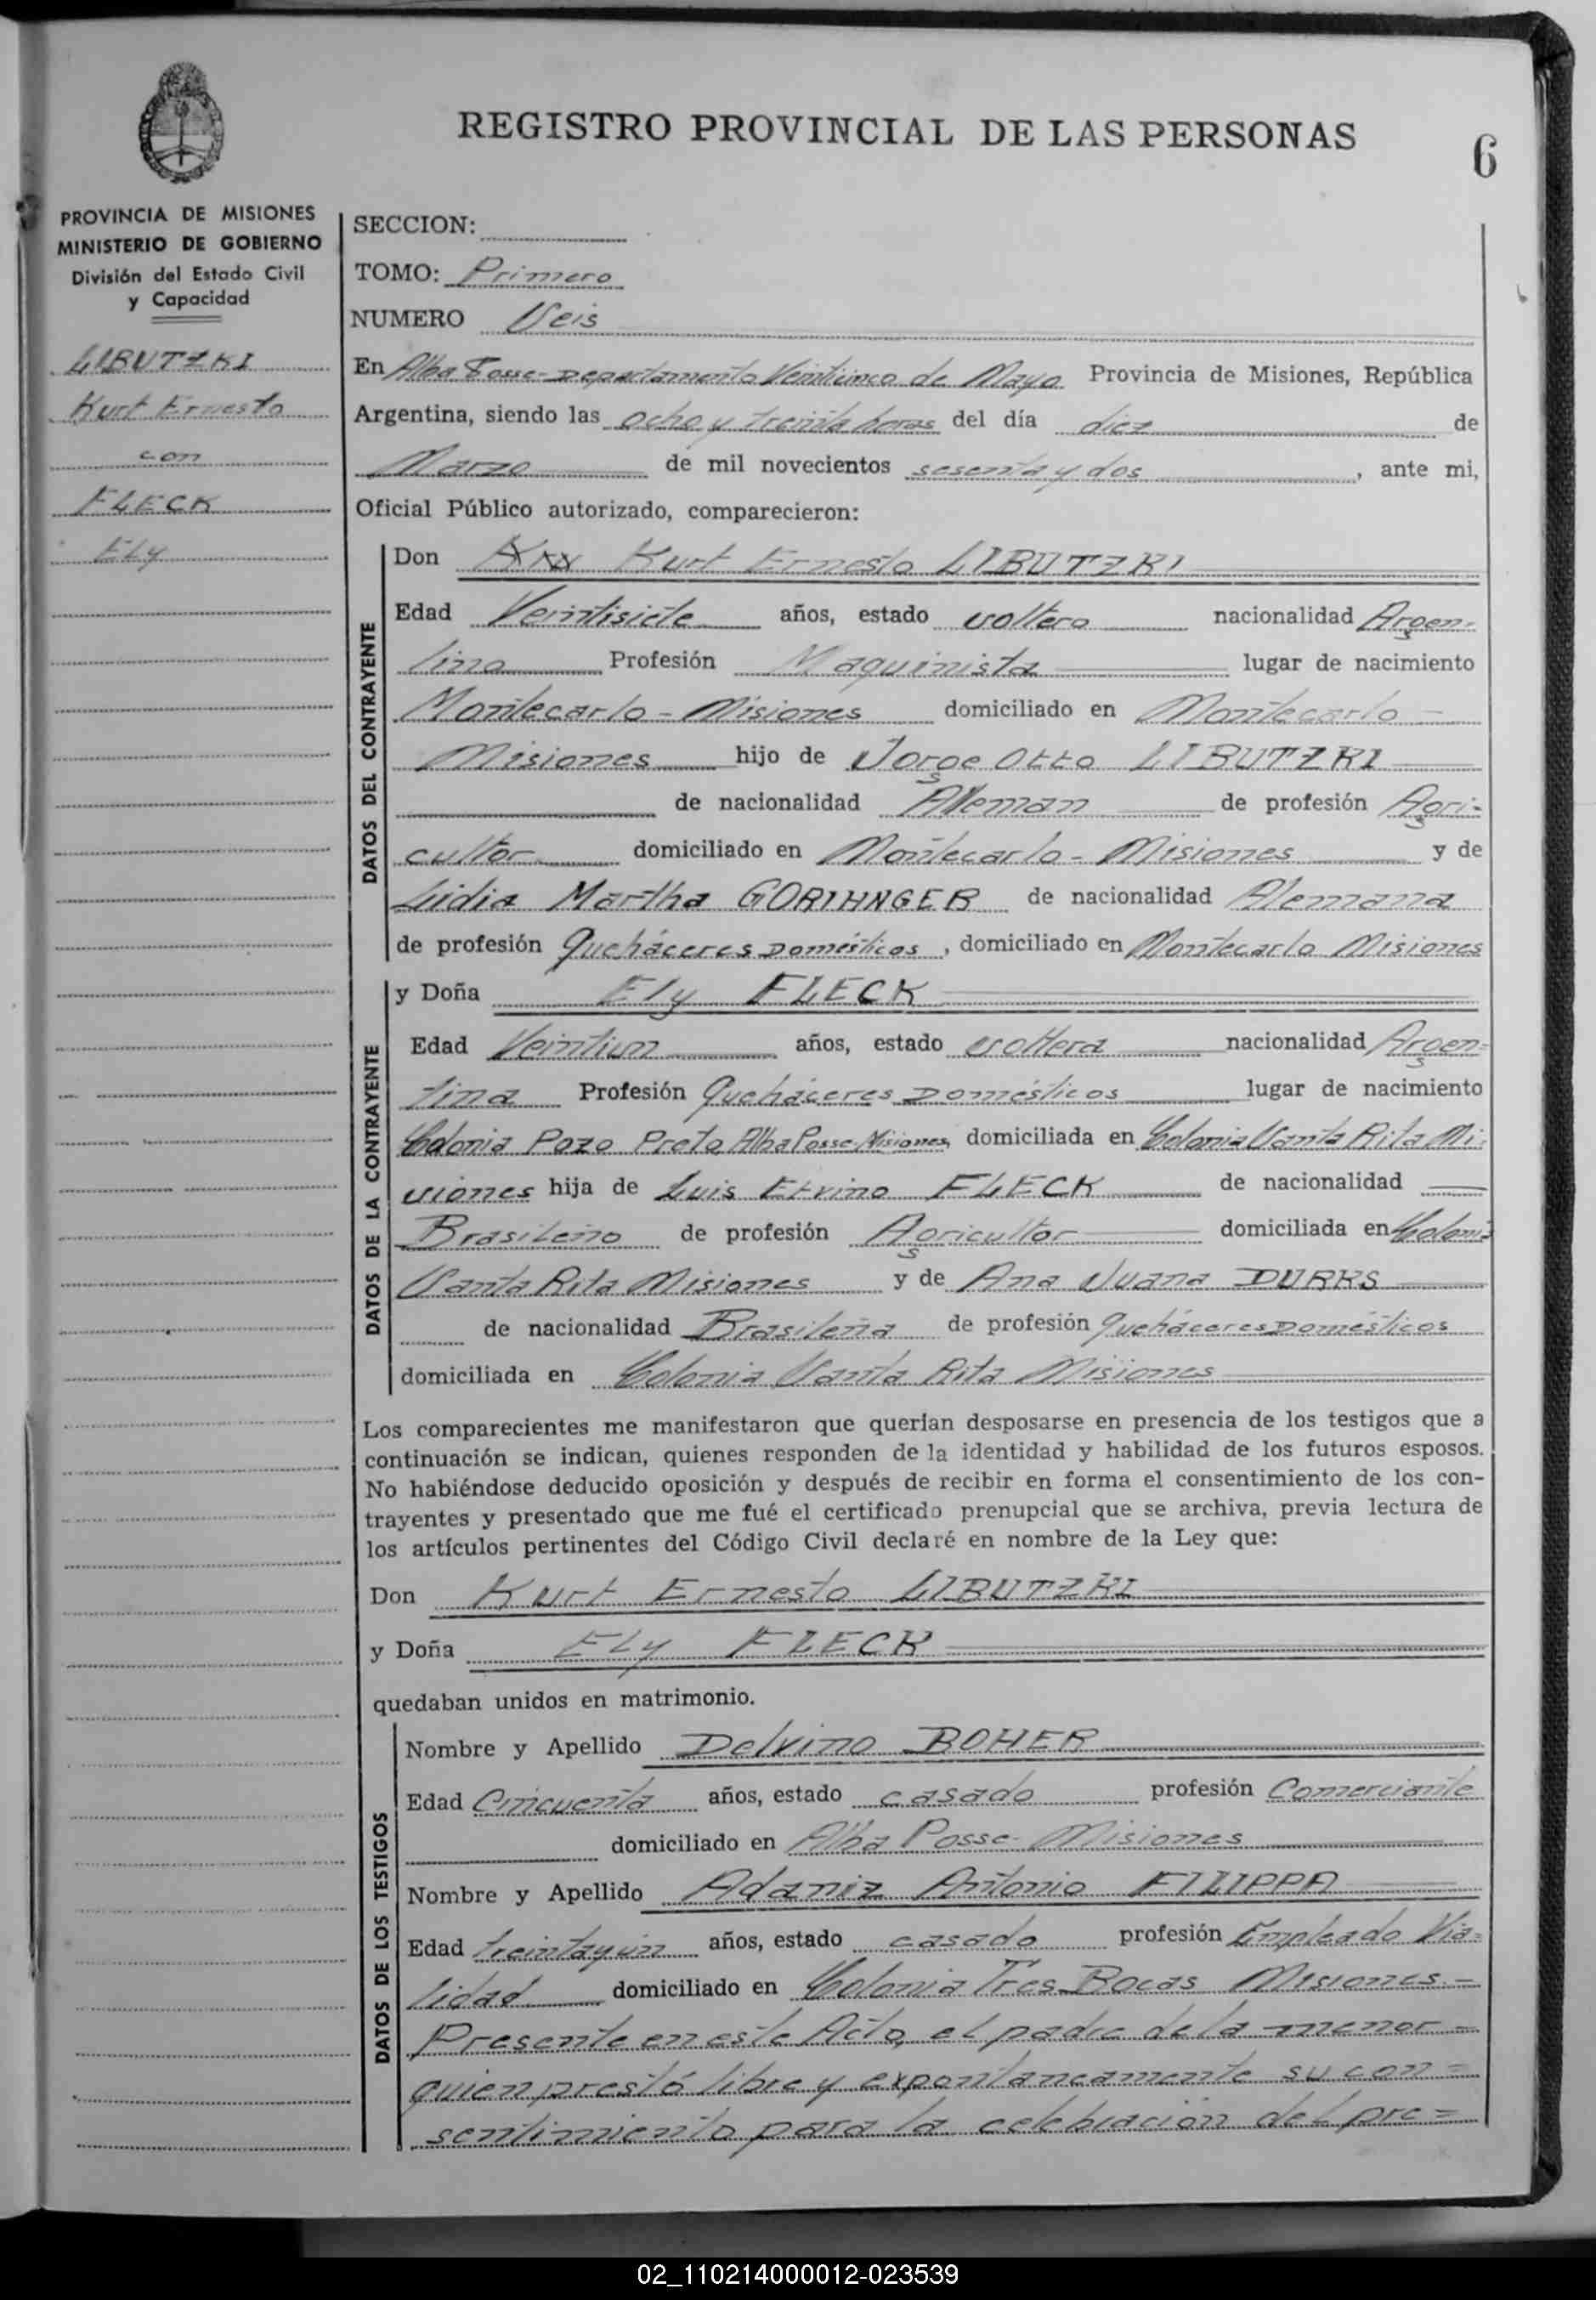 REGISTRO PROVINCIAL DE LAS PERSONAS
6
PROVINCIA DE MISIONES
MINISTERIO DE GOBIERNO
División del Estado Civil
y Capacidad
LIBUTZKI
Kurt Ernesto
con
FLECK
Ely
SECCION:
TOMO: Primero
NUMERO Seis
En Alba Posse - Departamento Veinticinco de Mayo Provincia de Misiones, República
Argentina, siendo las ocho y treinta horas del día diez de
Marzo de mil novecientos sesenta y dos, ante mi,
Oficial Público autorizado, comparecieron:
DATOS DEL CONTRAYENTE
Don Kurt Ernesto LIBUTZKI
Edad Veintisiete años, estado soltero nacionalidad Argen-
tino Profesión Maquinista lugar de nacimiento
Montecarlo - Misiones domiciliado en Montecarlo -
Misiones hijo de Jorge Otto LIBUTZKI
de nacionalidad Aleman de profesión Agri-
cultor domiciliado en Montecarlo - Misiones y de
Lidia Martha GORIHNGER de nacionalidad Alemana
de profesión Queháceres Domésticos, domiciliado en Montecarlo Misiones
DATOS DE LA CONTRAYENTE
y Doña Ely FLECK
Edad Veintiun años, estado soltera nacionalidad Argen-
tina Profesión Quehaceres Domésticos lugar de nacimiento
Colonia Pozo Preto, Alba Posse-Misiones, domiciliada en Colonia Santa Rita Mi-
siones hija de Luis Etvino FLECK de nacionalidad
Brasileño de profesión Agricultor domiciliada en Colonia
Santa Rita Misiones y de Ana Juana DURKS
de nacionalidad Brasileña de profesión Queháceres Domésticos
domiciliada en Colonia Santa Rita Misiones
Los comparecientes me manifestaron que querían desposarse en presencia de los testigos que a
continuación se indican, quienes responden de la identidad y habilidad de los futuros esposos.
No habiéndose deducido oposición y después de recibir en forma el consentimiento de los con-
trayentes y presentado que me fué el certificado prenupcial que se archiva, previa lectura de
los artículos pertinentes del Código Civil declaré en nombre de la Ley que:
Don Kurt Ernesto LIBUTZKI
y Doña Ely FLECK
quedaban unidos en matrimonio.
DATOS DE LOS TESTIGOS
Nombre y Apellido Delvino BOHER
Edad Cincuenta años, estado casado profesión Comerciante
domiciliado en Alba Posse - Misiones
Nombre y Apellido Adaniz Antonio FILIPPA
Edad treintayún años, estado casado profesión Empleado Via-
lidad domiciliado en Colonia Tres Bocas Misiones.-
Presente en este Acto, el padre de la menor -
quien prestó libre y expontaneamente su con=
sentimiento para la celebración del pre=
02_110214000012-023539